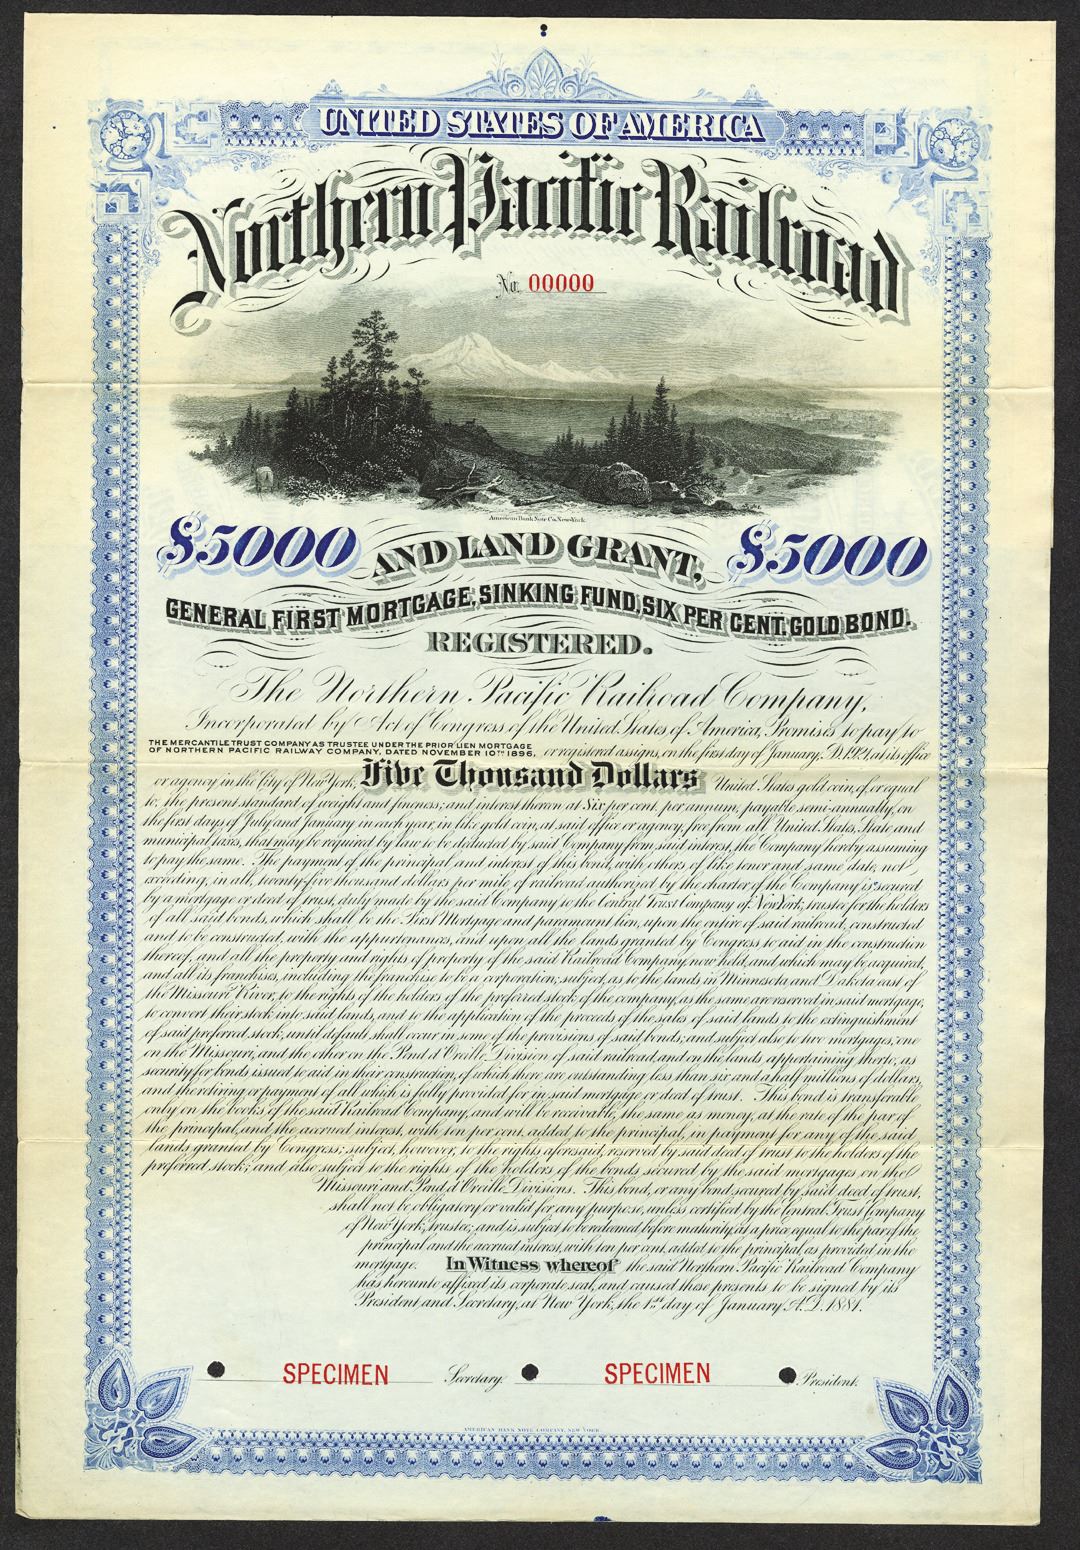 UNITED STATES OF AMERICA
Northern Pacific Railroad
No. 00000
American Bank Note Co. New York.
$5000 AND LAND GRANT, $5000
GENERAL FIRST MORTGAGE, SINKING FUND, SIX PER CENT. GOLD BOND.
REGISTERED.
The Northern Pacific Railroad Company,
Incorporated by Act of Congress of the United States of America, Promises to pay to
THE MERCANTILE TRUST COMPANY AS TRUSTEE UNDER THE PRIOR LIEN MORTGAGE
OF NORTHERN PACIFIC RAILWAY COMPANY, DATED NOVEMBER 10TH 1896, or registered assigns, on the first day of January, A.D. 1921, at its office
or agency in the City of New York, Five Thousand Dollars United States gold coin, of or equal
to, the present standard of weight and fineness; and interest thereon at Six per cent. per annum, payable semi-annually, on
the first days of July and January in each year, in like gold coin, at said office or agency, free from all United States, State and
municipal taxes, that may be required by law to be deducted by said Company from said interest, the Company hereby assuming
to pay the same. The payment of the principal and interest of this bond, with others of like tenor and same date, not
exceeding, in all, twenty-five thousand dollars per mile of railroad authorized by the charter of the Company is secured
by a mortgage or deed of trust, duly made by the said Company to the Central Trust Company of New York, trustee for the holders
of all said bonds, which shall be the First Mortgage and paramount lien, upon the entire of said railroad, constructed
and to be constructed, with the appurtenances, and upon all the lands granted by Congress to aid in the construction
thereof, and all the property and rights of property of the said Railroad Company, now held, and which may be acquired,
and all its franchises, including the franchise to be a corporation; subject, as to the lands in Minnesota and Dakota east of
the Missouri River, to the rights of the holders of the preferred stock of the company, as the same are reserved in said mortgage,
to convert their stock into said lands, and to the application of the proceeds of the sales of said lands to the extinguishment
of said preferred stock, until default shall occur in some of the provisions of said bonds; and subject also to two mortgages, one
on the Missouri, and the other on the Pend d'Oreille Division of said railroad, and on the lands appertaining thereto, as
security for bonds issued to aid in their construction, of which there are outstanding less than six and a half millions of dollars,
and the retiring or payment of all which is fully provided for in said mortgage or deed of trust. This bond is transferable
only on the books of the said Railroad Company, and will be receivable, the same as money, at the rate of the par of
the principal, and the accrued interest, with ten per cent. added to the principal, in payment for any of the said
lands granted by Congress; subject, however, to the rights aforesaid, reserved by said deed of trust to the holders of the
preferred stock; and also subject to the rights of the holders of the bonds secured by the said mortgages on the
Missouri and Pend d'Oreille Divisions. This bond, or any bond secured by said deed of trust,
shall not be obligatory or valid for any purpose, unless certified by the Central Trust Company
of New York, trustee; and is subject to be redeemed before maturity, at a price equal to the par of the
principal and the accrued interest, with ten per cent. added to the principal, as provided in the
mortgage. In Witness whereof the said Northern Pacific Railroad Company
has hereunto affixed its corporate seal, and caused these presents to be signed by its
President and Secretary, at New York, the 1st day of January, A.D. 1881.
SPECIMEN Secretary. SPECIMEN President.
AMERICAN BANK NOTE COMPANY, NEW YORK.